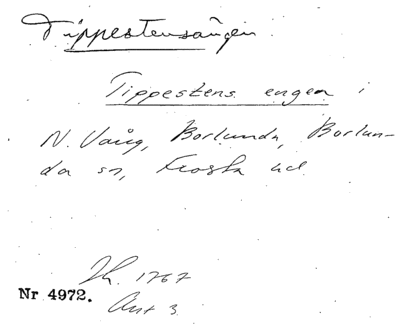 Tippestensängen
Tippestens engen i
N. Vång, Borlunda, Borlun-
da sn, Frosta hd.
Jh. 1767
Nr 4972.
Akt 3